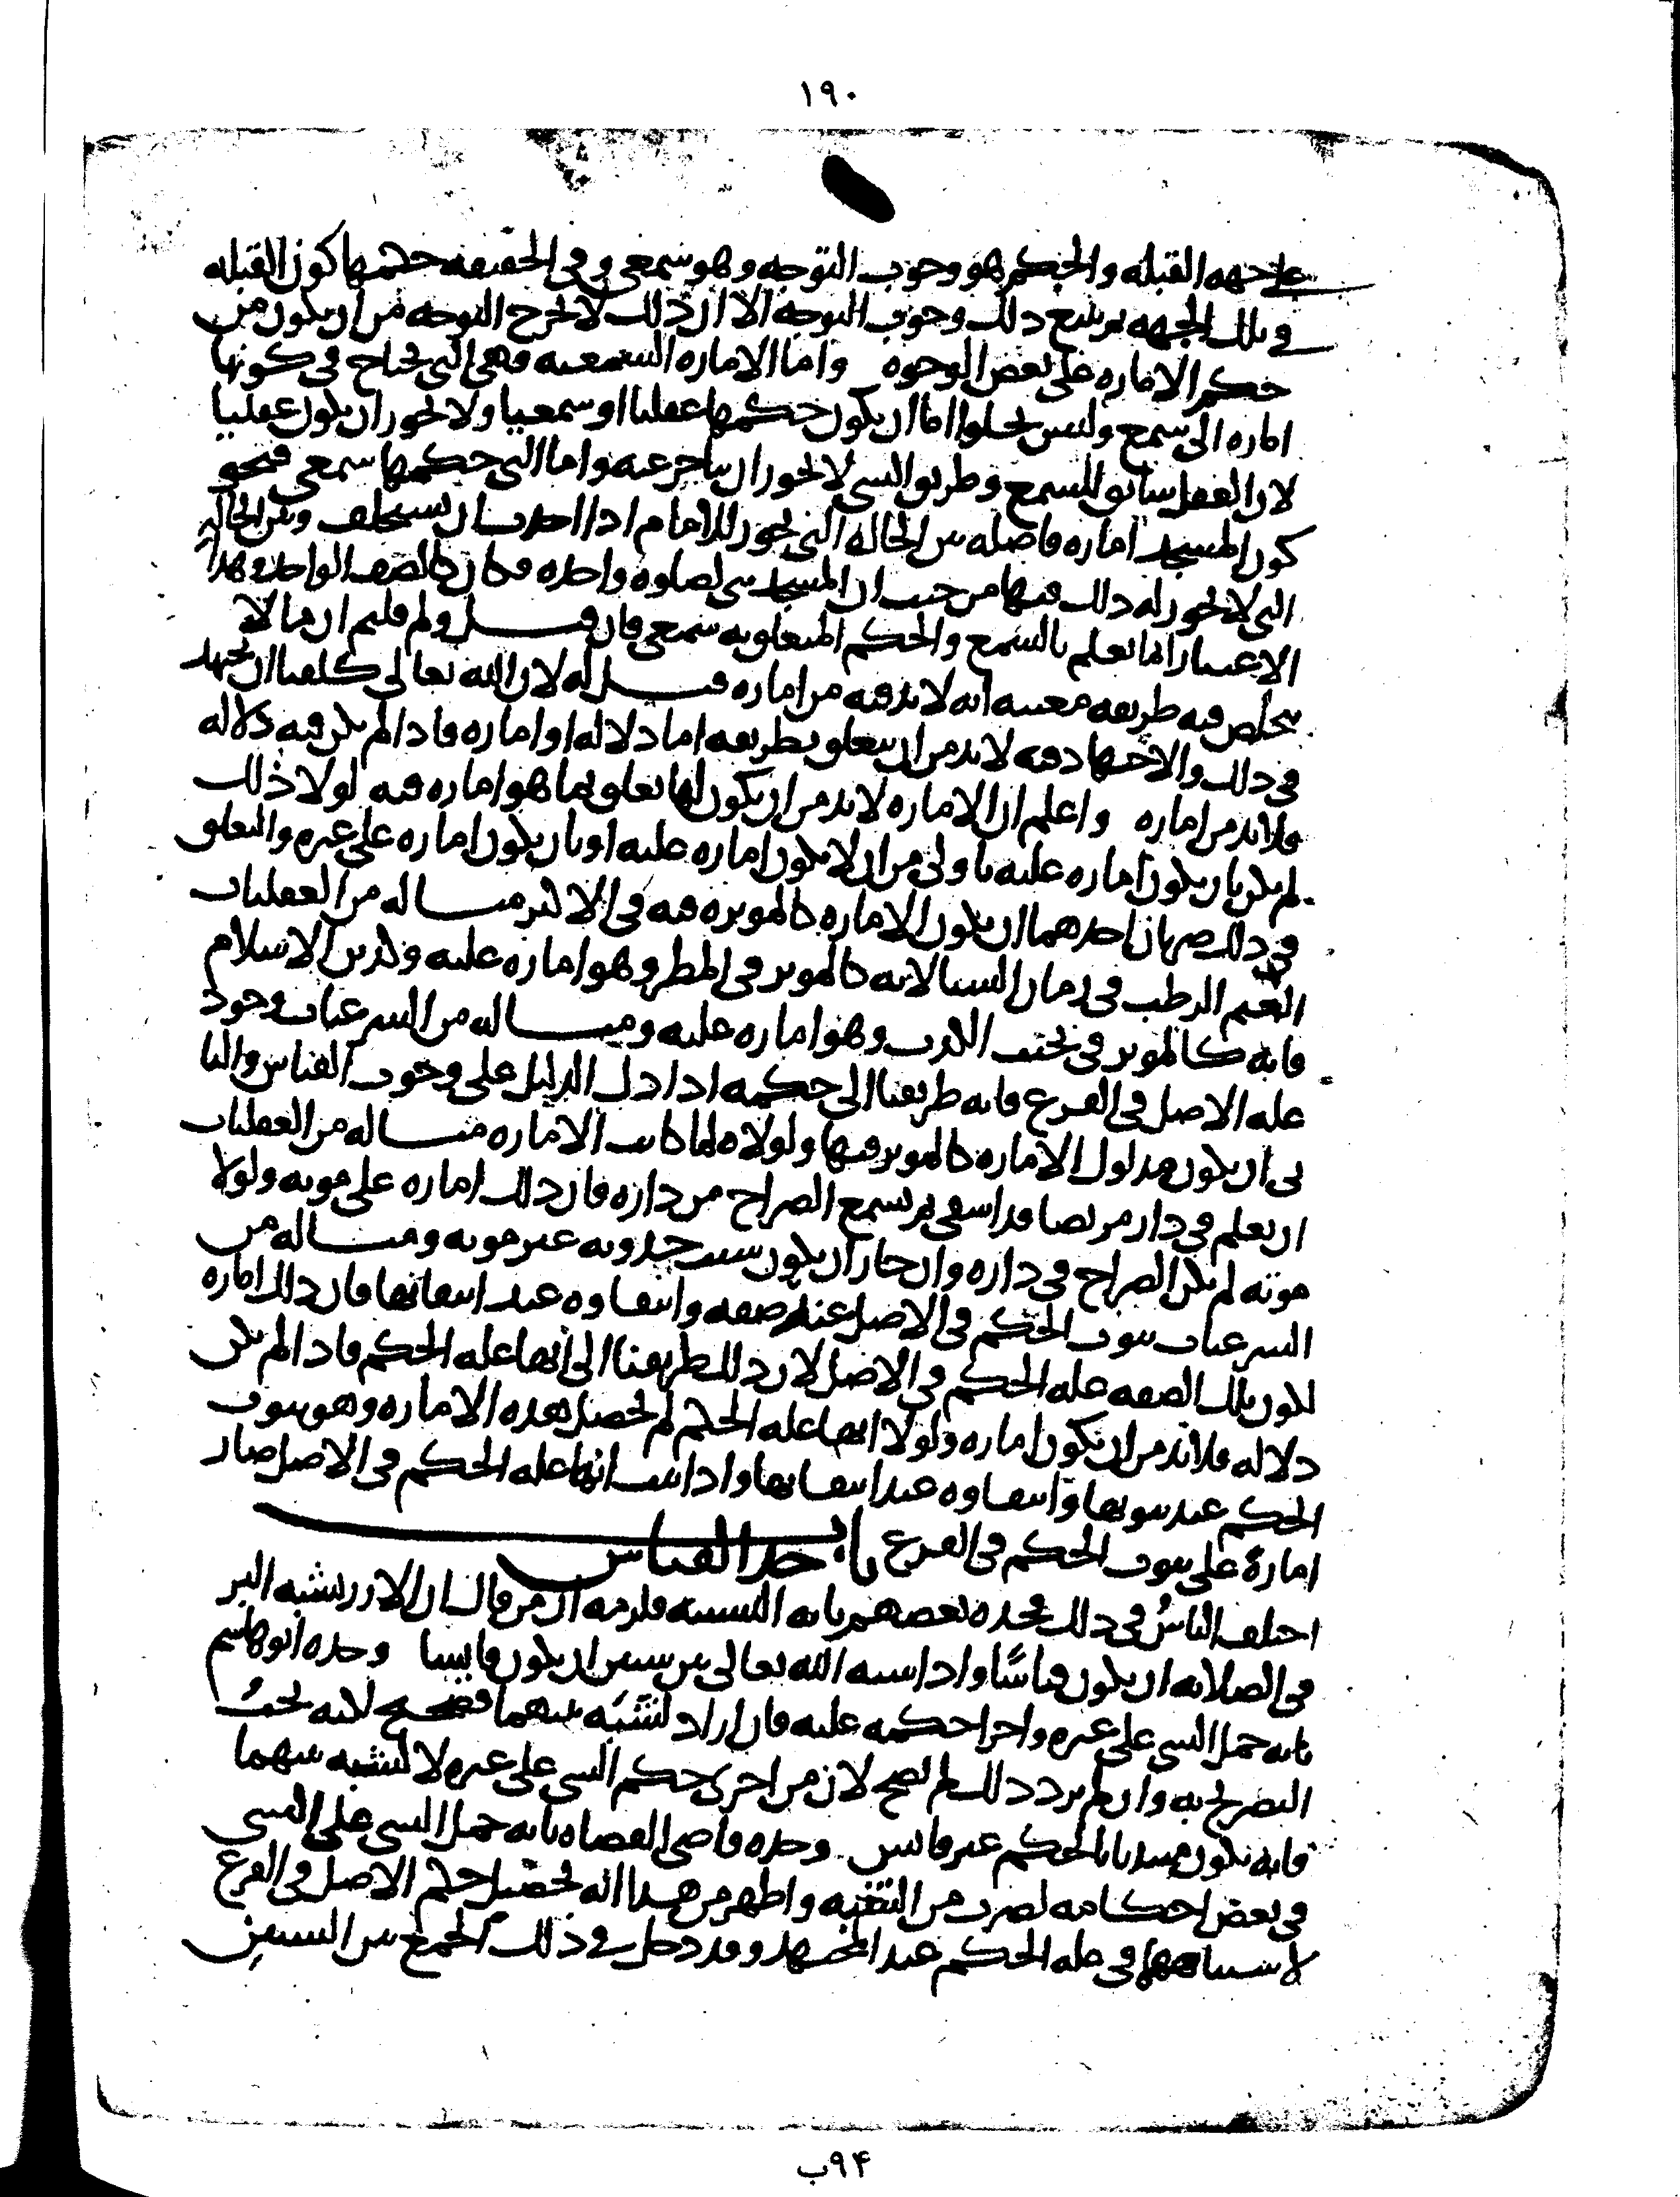 ١٩٠
على جهه القبله والحكم هو وجوب التوجه وهو سمعي وفي الحقيقه حكمها كون القبله
في تلك الجهه ثم يتبع ذلك وجوب التوجه الا ان ذلك لا يخرج التوجه من ان يكون من
حكم الاماره على بعض الوجوه واما الاماره السمعيه فهي التي يحتاج في كونها
اماره الى سمع وليس يخلوا اما ان يكون حكمها عقليا او سمعيا ولا يجوز ان يكون عقليا
لان العقل سابق للسمع وطريق الشي لا يجوز ان يتاخر عنه واما التي حكمها سمعي فنحو
كون المسجد اماره فاصله بين الحاله التي يجوز للامام اذا احدث ان يستخلف وبين الحاله
التي لا يجوز له ذلك فيها من حيث ان المسجد بني لصلوه واحده فكان كالصف الواحد وهذا
الاعتبار انما يعلم بالسمع والحكم المتعلق به سمعي فان قيل ولم قلتم ان ما لا
يخلص فيه طريقه معينه انه لا بد فيه من اماره قيل له لان الله تعالى كلفنا ان نجتهد
في ذلك والاجتهاد فيه لا بد من ان يتعلق بطريقه اما دلاله او اماره فاذا لم يكن فيه دلاله
فلا بد من اماره واعلم ان الاماره لا بد من ان يكون لها تعلق بما هو اماره فيه لولا ذلك
لم يكن بان يكون اماره عليه باولى من ان لا يكون اماره عليه او بان يكون اماره على غيره والتعلق
في ذلك ضربان احدهما ان يكون الاماره كالموثره فيه في الاكثر مثاله من العقليات
الغيم الرطب في زمان الشتا لانه كالموثر في المطر وهو اماره عليه
فانه كالموثر في وهو اماره عليه ومثاله من الشرعيات وجود
عله الاصل في الفرع فانه طريقنا الى حكمه اذا دل الدليل على وجوب القياس والثا
ني ان يكون مدلول الاماره كالموثر فيها ولولاه لما كانت الاماره مثاله من العقليات
ان يعلم في دار مريضا قد اشفى ثم يسمع الصراخ من داره فان ذلك اماره على موته ولولا
موته لم يكن الصراخ في داره وان جاز ان يكون سبب حدوثه غير موته ومثاله من
الشرعيات ثبوت الحكم في الاصل عند صفه وانتفاوه عند انتفائها فان ذلك اماره
لكون تلك الصفه عله الحكم في الاصل لان ذلك طريقنا الى انها عله الحكم فاذا لم يكن
دلاله فلا بد من ان يكون اماره ولولا انها عله الحكم لم تحصل هذه الاماره وهو ثبوت
الحكم عند ثبوتها وانتفاوه عند انتفائها واذا ثبت انها عله الحكم في الاصل صار
امارة على ثبوت الحكم في الفرع باب حد القياس
اختلف الناس في ذلك فحده بعضهم بانه التشبيه فلزمه ان من قال ان الارز يشبه البر
في الصلابه ان يكون قياسًا واذا شبه الله تعالى بين شيين ان يكون قايسا وحده ابو هاشم
بانه حمل الشي على غيره واجرا حكمه عليه فان اراد لشبه بينهما فصحيح لانه يجب
التصريح به وان لم يرد ذلك لم يصح لان من اجرى حكم الشي على غيره لا لشبه بينهما
فانه يكون مبتديا بالحكم غير قايس وحده قاضي القضاه بانه حمل الشي على الشي
في بعض احكامه لضرب من الشبه واظهر من هذا انه تحصيل حكم الاصل في الفرع
لاشتباههما في عله الحكم عند المجتهد وقد دخل في ذلك الجمع بين الشيين
٩۴ب